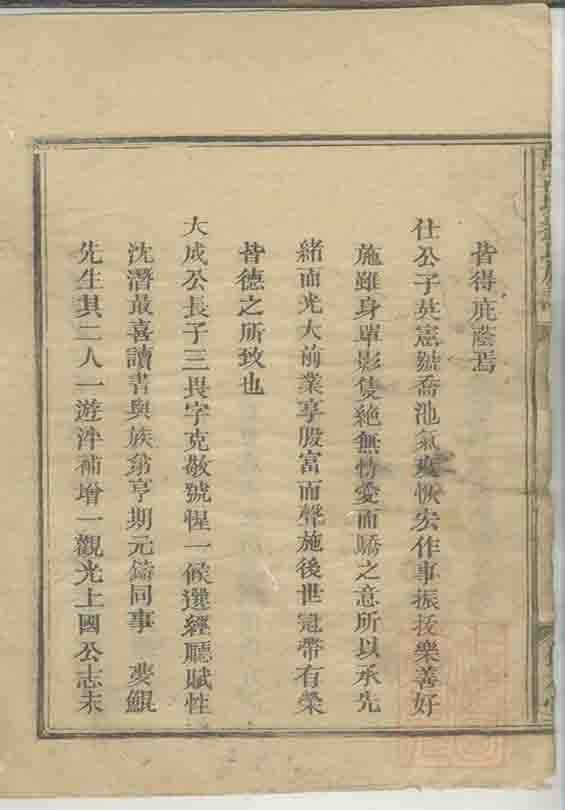 皆得庇蔭焉
仕公子英憲號喬池氣度恢宏作事振拔樂善好
施雖身單影隻絕無恃愛而驕之意所以承先
緒而光大前業享殷富而聲施後世冠帶有榮
皆德之所致也
大成公長子三畏字克敬號惺一候選經廳賦性
沈潛最喜讀書與族翁亨期元鑄同事 夢鯤
先生其二人一遊泮補增一觀光上國公志未